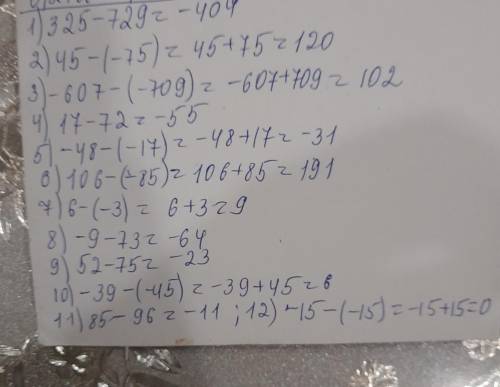 1) 325-729=-404
2) 45-(-75)=45+75=120
3) -607-(-709)=-607+709=102
4) 17-72=-55
5) -48-(-17)=-48+17=-31
6) 106-(-85)=106+85=191
7) 6-(-3)=6+3=9
8) -9-73=-64
9) 52-75=-23
10) -39-(-45)=-39+45=6
11) 85-96=-11; 12) -15-(-15)=-15+15=0